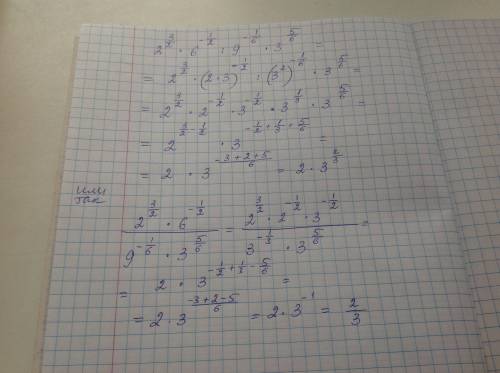 2^{3/2} · 6^{-1/2} : 9^{-1/6} · 3^{5/6} =
= 2^{3/2} · (2·3)^{-1/2} : (3^2)^{-1/6} · 3^{5/6} =
= 2^{3/2} · 2^{-1/2} · 3^{-1/2} · 3^{1/3} · 3^{5/6} =
= 2^{3/2 - 1/2} · 3^{-1/2 + 1/3 + 5/6} =
= 2 · 3^{(-3+2+5)/6} = 2 · 3^{2/3}
или
так
(2^{3/2} · 6^{-1/2}) / (9^{-1/6} · 3^{5/6}) = (2^{3/2} · 2^{-1/2} · 3^{-1/2}) / (3^{-1/3} · 3^{5/6}) =
= 2 · 3^{-1/2 + 1/3 - 5/6} =
= 2 · 3^{(-3+2-5)/6} = 2 · 3^{-1} = 2/3